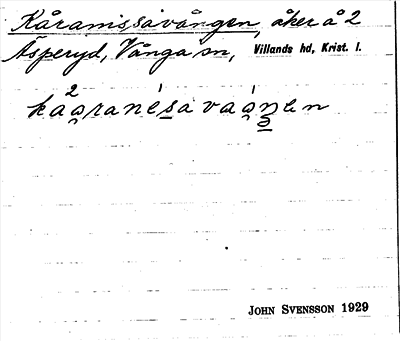 Kåramissåvången, åker å 2
Äsperyd, Vånga sn, Villands hd, Krist. l.
JOHN SVENSSON 1929